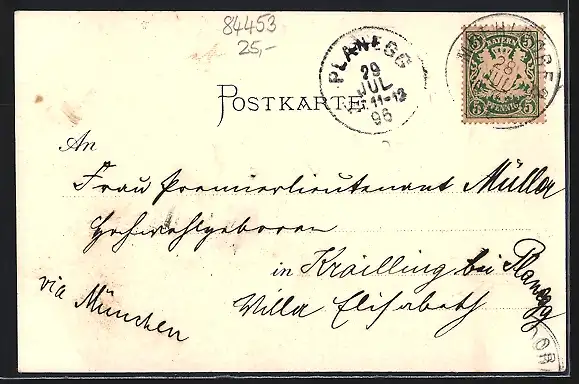 84453
25,-
PLANEGG
29
JUL
11-12
96
BAYERN
5 5
5 5
29
JUL
POSTKARTE
An
Frau Premierlieutenant Müller
Hochwohlgeboren
in Krailling bei Planegg
via München
Villa Elisabeth